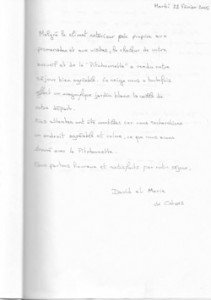 Mardi, 28 Février 2006
Malgré le climat extérieur peu propice aux
promenades et aux visites, la chaleur de votre
accueil et de la "Pilotonnelle" a rendu notre
séjour bien agréable. La neige nous a toutefois
offert un magnifique jardin blanc le matin de
notre départ.
Nos attentes ont été comblées car nous recherchions
un endroit agréable et calme, ce que nous avons
trouvé avec la Pilotonnelle.
Nous partons heureux et satisfaits par notre séjour.
David et Marie
de